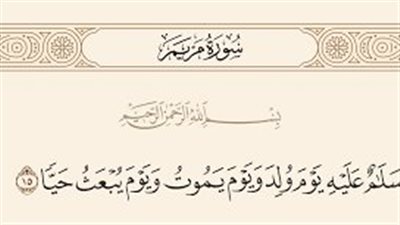 سُورَةُ مَرْيَمَ
بِسْمِ اللَّهِ الرَّحْمَٰنِ الرَّحِيمِ
سَلَٰمٌ عَلَيْهِ يَوْمَ وُلِدَ وَيَوْمَ يَمُوتُ وَيَوْمَ يُبْعَثُ حَيًّا ١٥